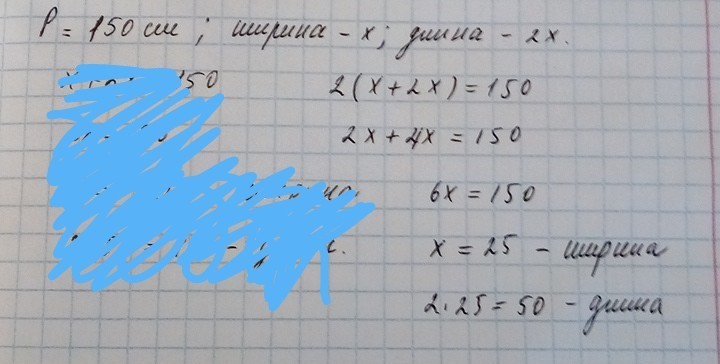 P = 150 см ; ширина - x ; длина - 2x.
150
2(x+2x)=150
2x+4x=150
6x=150
x=25 - ширина
2·25=50 - длина